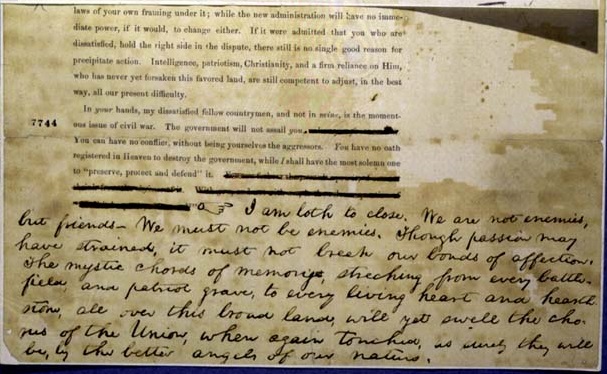 laws of your own framing under it; while the new administration will have no imme-
diate power, if it would, to change either. If it were admitted that you who are
dissatisfied, hold the right side in the dispute, there still is no single good reason for
precipitate action. Intelligence, patriotism, Christianity, and a firm reliance on Him,
who has never yet forsaken this favored land, are still competent to adjust, in the best
way, all our present difficulty.
In your hands, my dissatisfied fellow countrymen, and not in mine, is the moment-
7744
ous issue of civil war. The government will not assail you,
You can have no conflict, without being yourselves the aggressors. You have no oath
registered in Heaven to destroy the government, while I shall have the most solemn one
to "preserve, protect and defend" it.
I am loth to close. We are not enemies,
but friends— We must not be enemies. Though passion may
have strained, it must not break our bonds of affection.
The mystic chords of memory, streching from every battle-
field, and patriot grave, to every living heart and hearth-
stone, all over this broad land, will yet swell the cho-
rus of the Union, when again touched, as surely they will
be, by the better angels of our nature.